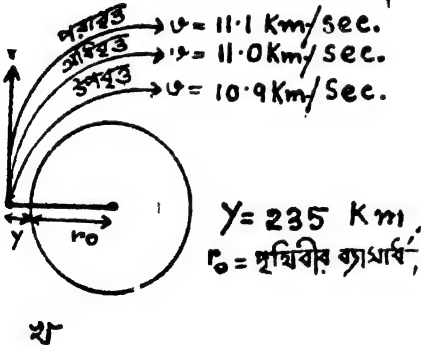 পরাবৃত্ত → v = 11.1 Km/sec.
অধিবৃত্ত → v = 11.0 Km/sec.
উপবৃত্ত → v = 10.9 Km/Sec.
v
y
r₀
Y = 235 Km,
r₀ = পৃথিবীর ব্যাসার্ধ,
খ